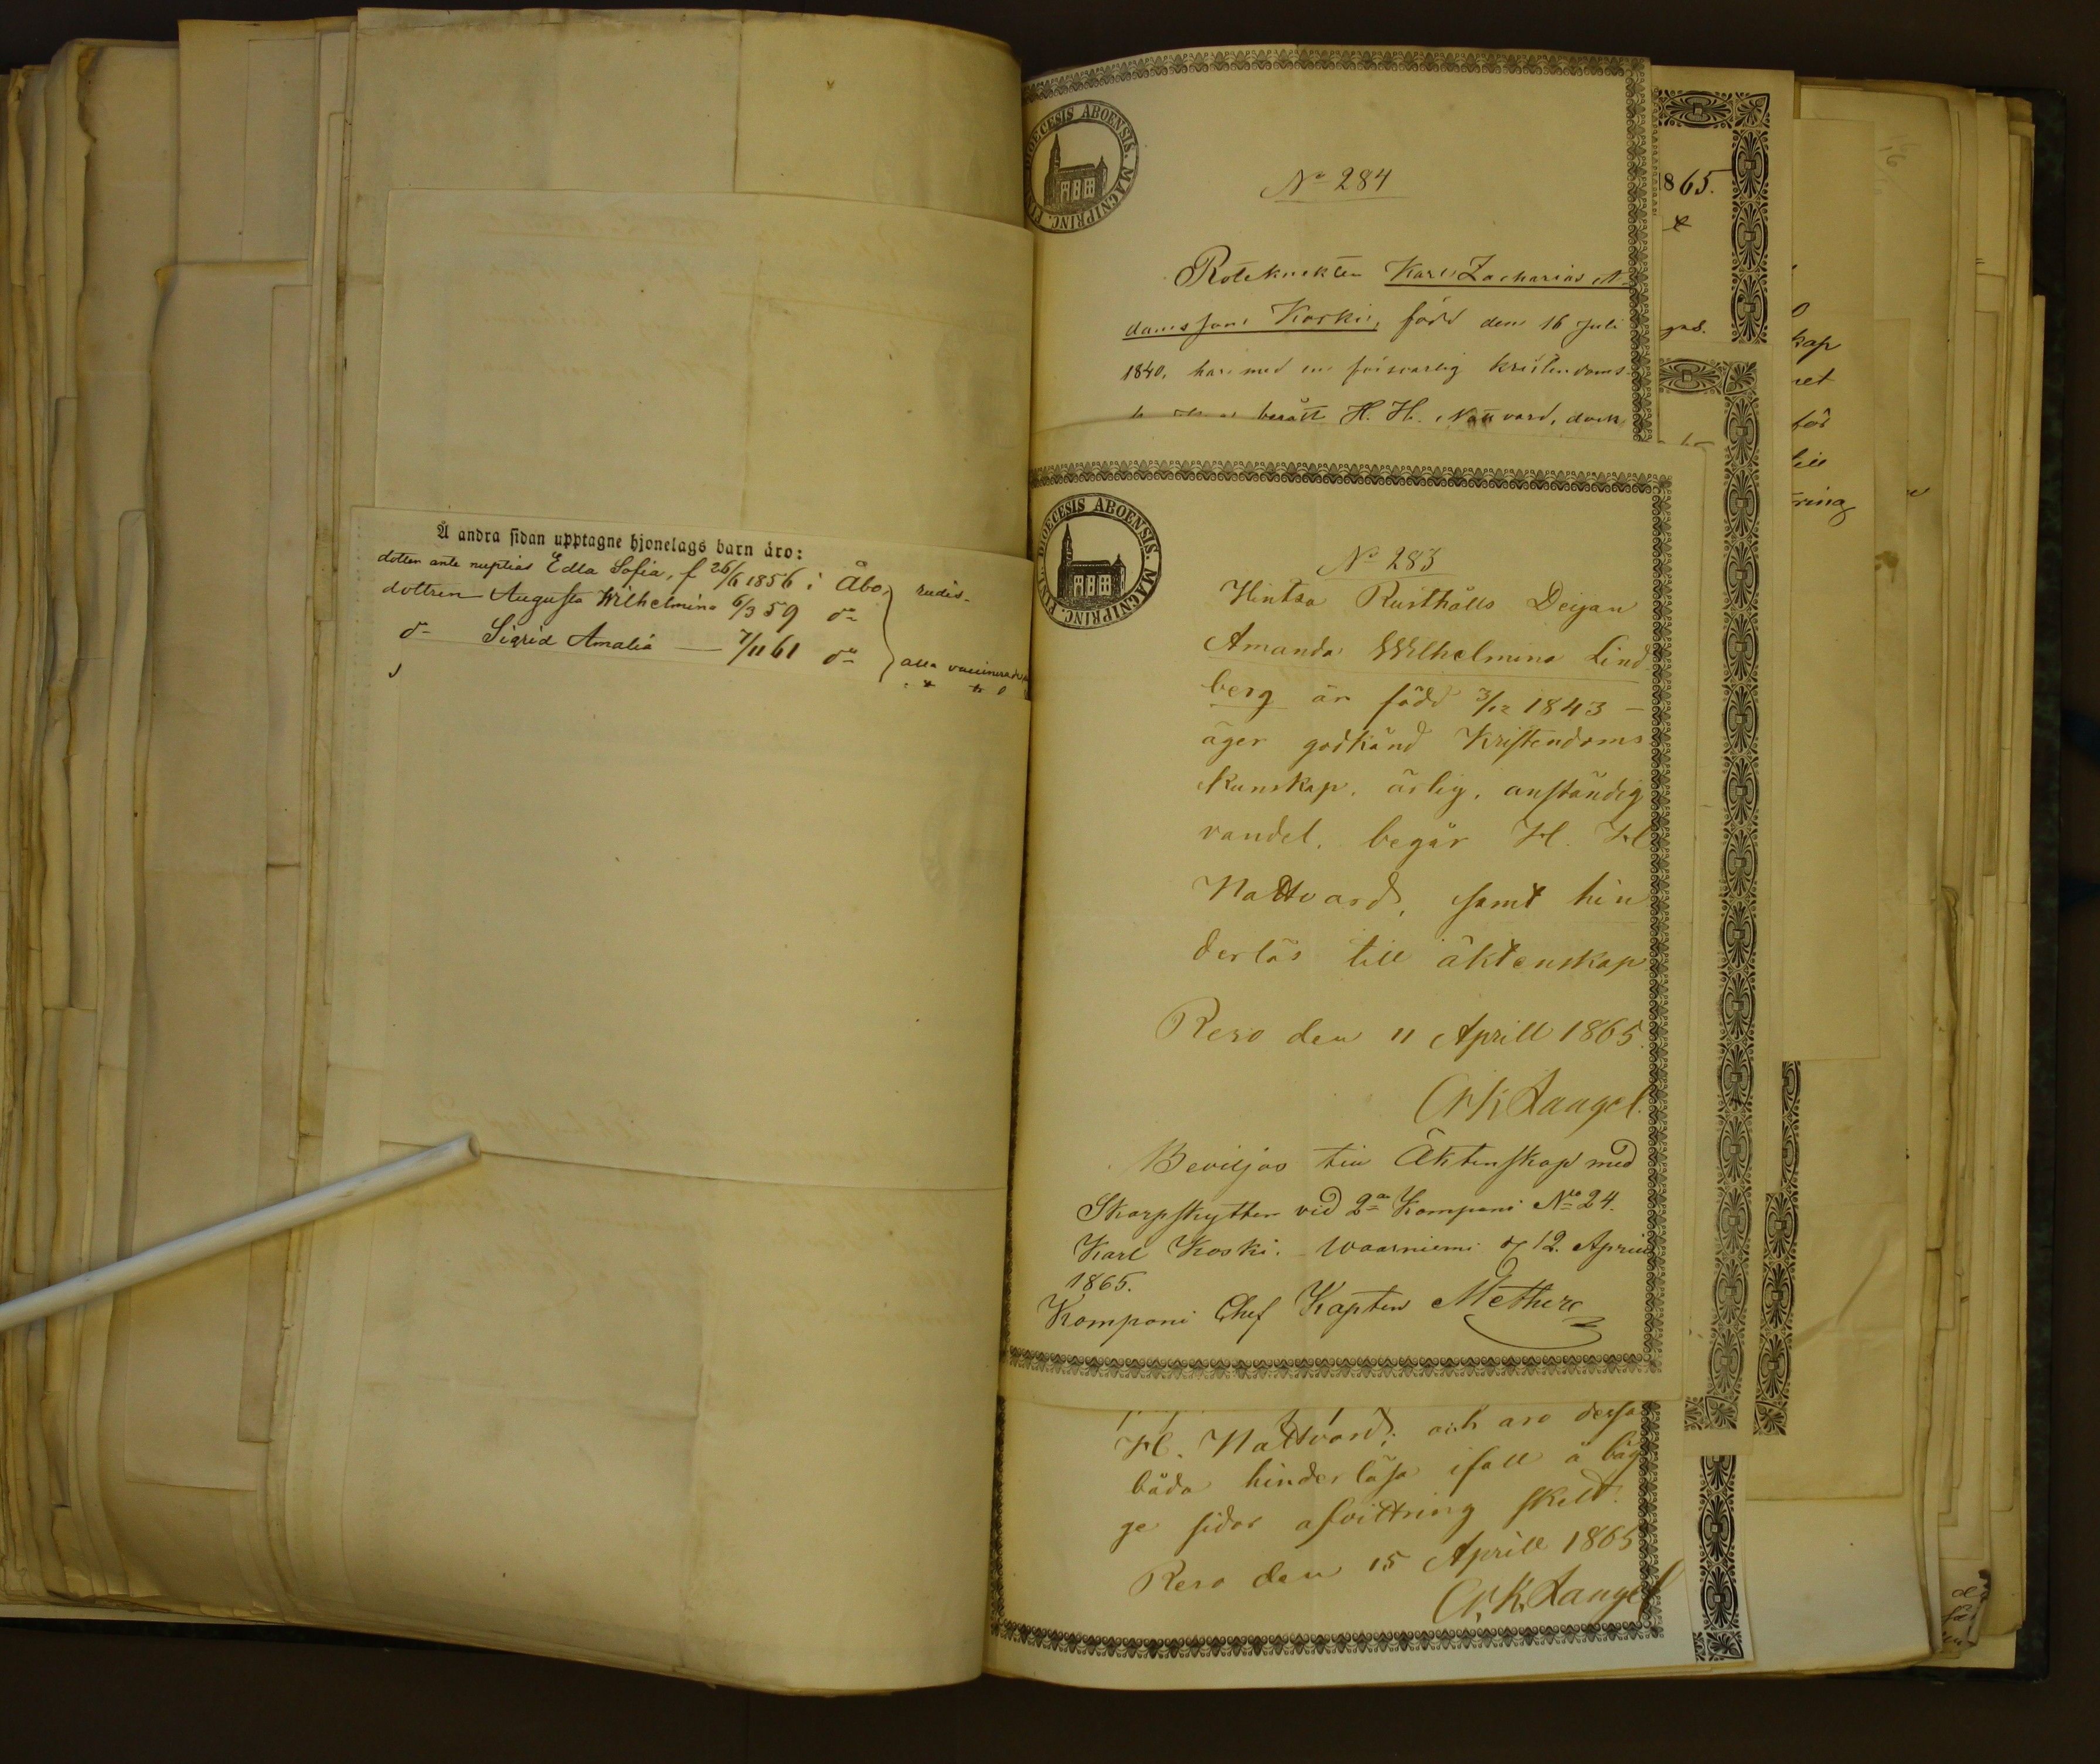 Å andra sidan upptagne hjonelags barn äro:
dotter ante nuptias Edla Sofia, f 26/6 1856 i Åbo, rudis.
dottren Augusta Wilhelmina 6/3 59 do
do Sigrid Amalia — 7/11 61 do alla vaccinerade
DIOECESIS ABOENSIS. MAGNIPRINC.
No 284
Roteknekten Karl Zacharias A-
damsson Koski, född den 16 Juli
1840, har med en försvarlig kristendoms-
H. H. Nattvard, dock
DIOECESIS ABOENSIS. MAGNIPRINC. FINL.
No 283
Hintsa Rusthålls Deijan
Amanda Wilhelmina Lind-
berg är född 3/12 1843 —
äger godkänd Kristendoms
kunskap, ärlig, anständig
vandel, begår H. H
Nattvard, samt hin
derlös till äktenskap
Reso den 11 Aprill 1865.
Langel.
Beviljas till Äktenskap med
Skarpskytten vid 2a Kompani No 24.
Karl Koski. Waarniemi d 12. April
1865.
Kompani Chef Kapten Methere
H. Nattvard; och äro dessa
båda hinderlösa ifall å båg
ge sidor afvittring skett.
Reso den 15 Aprill 1865
Langel
865.
kap
ret
för
till
tring